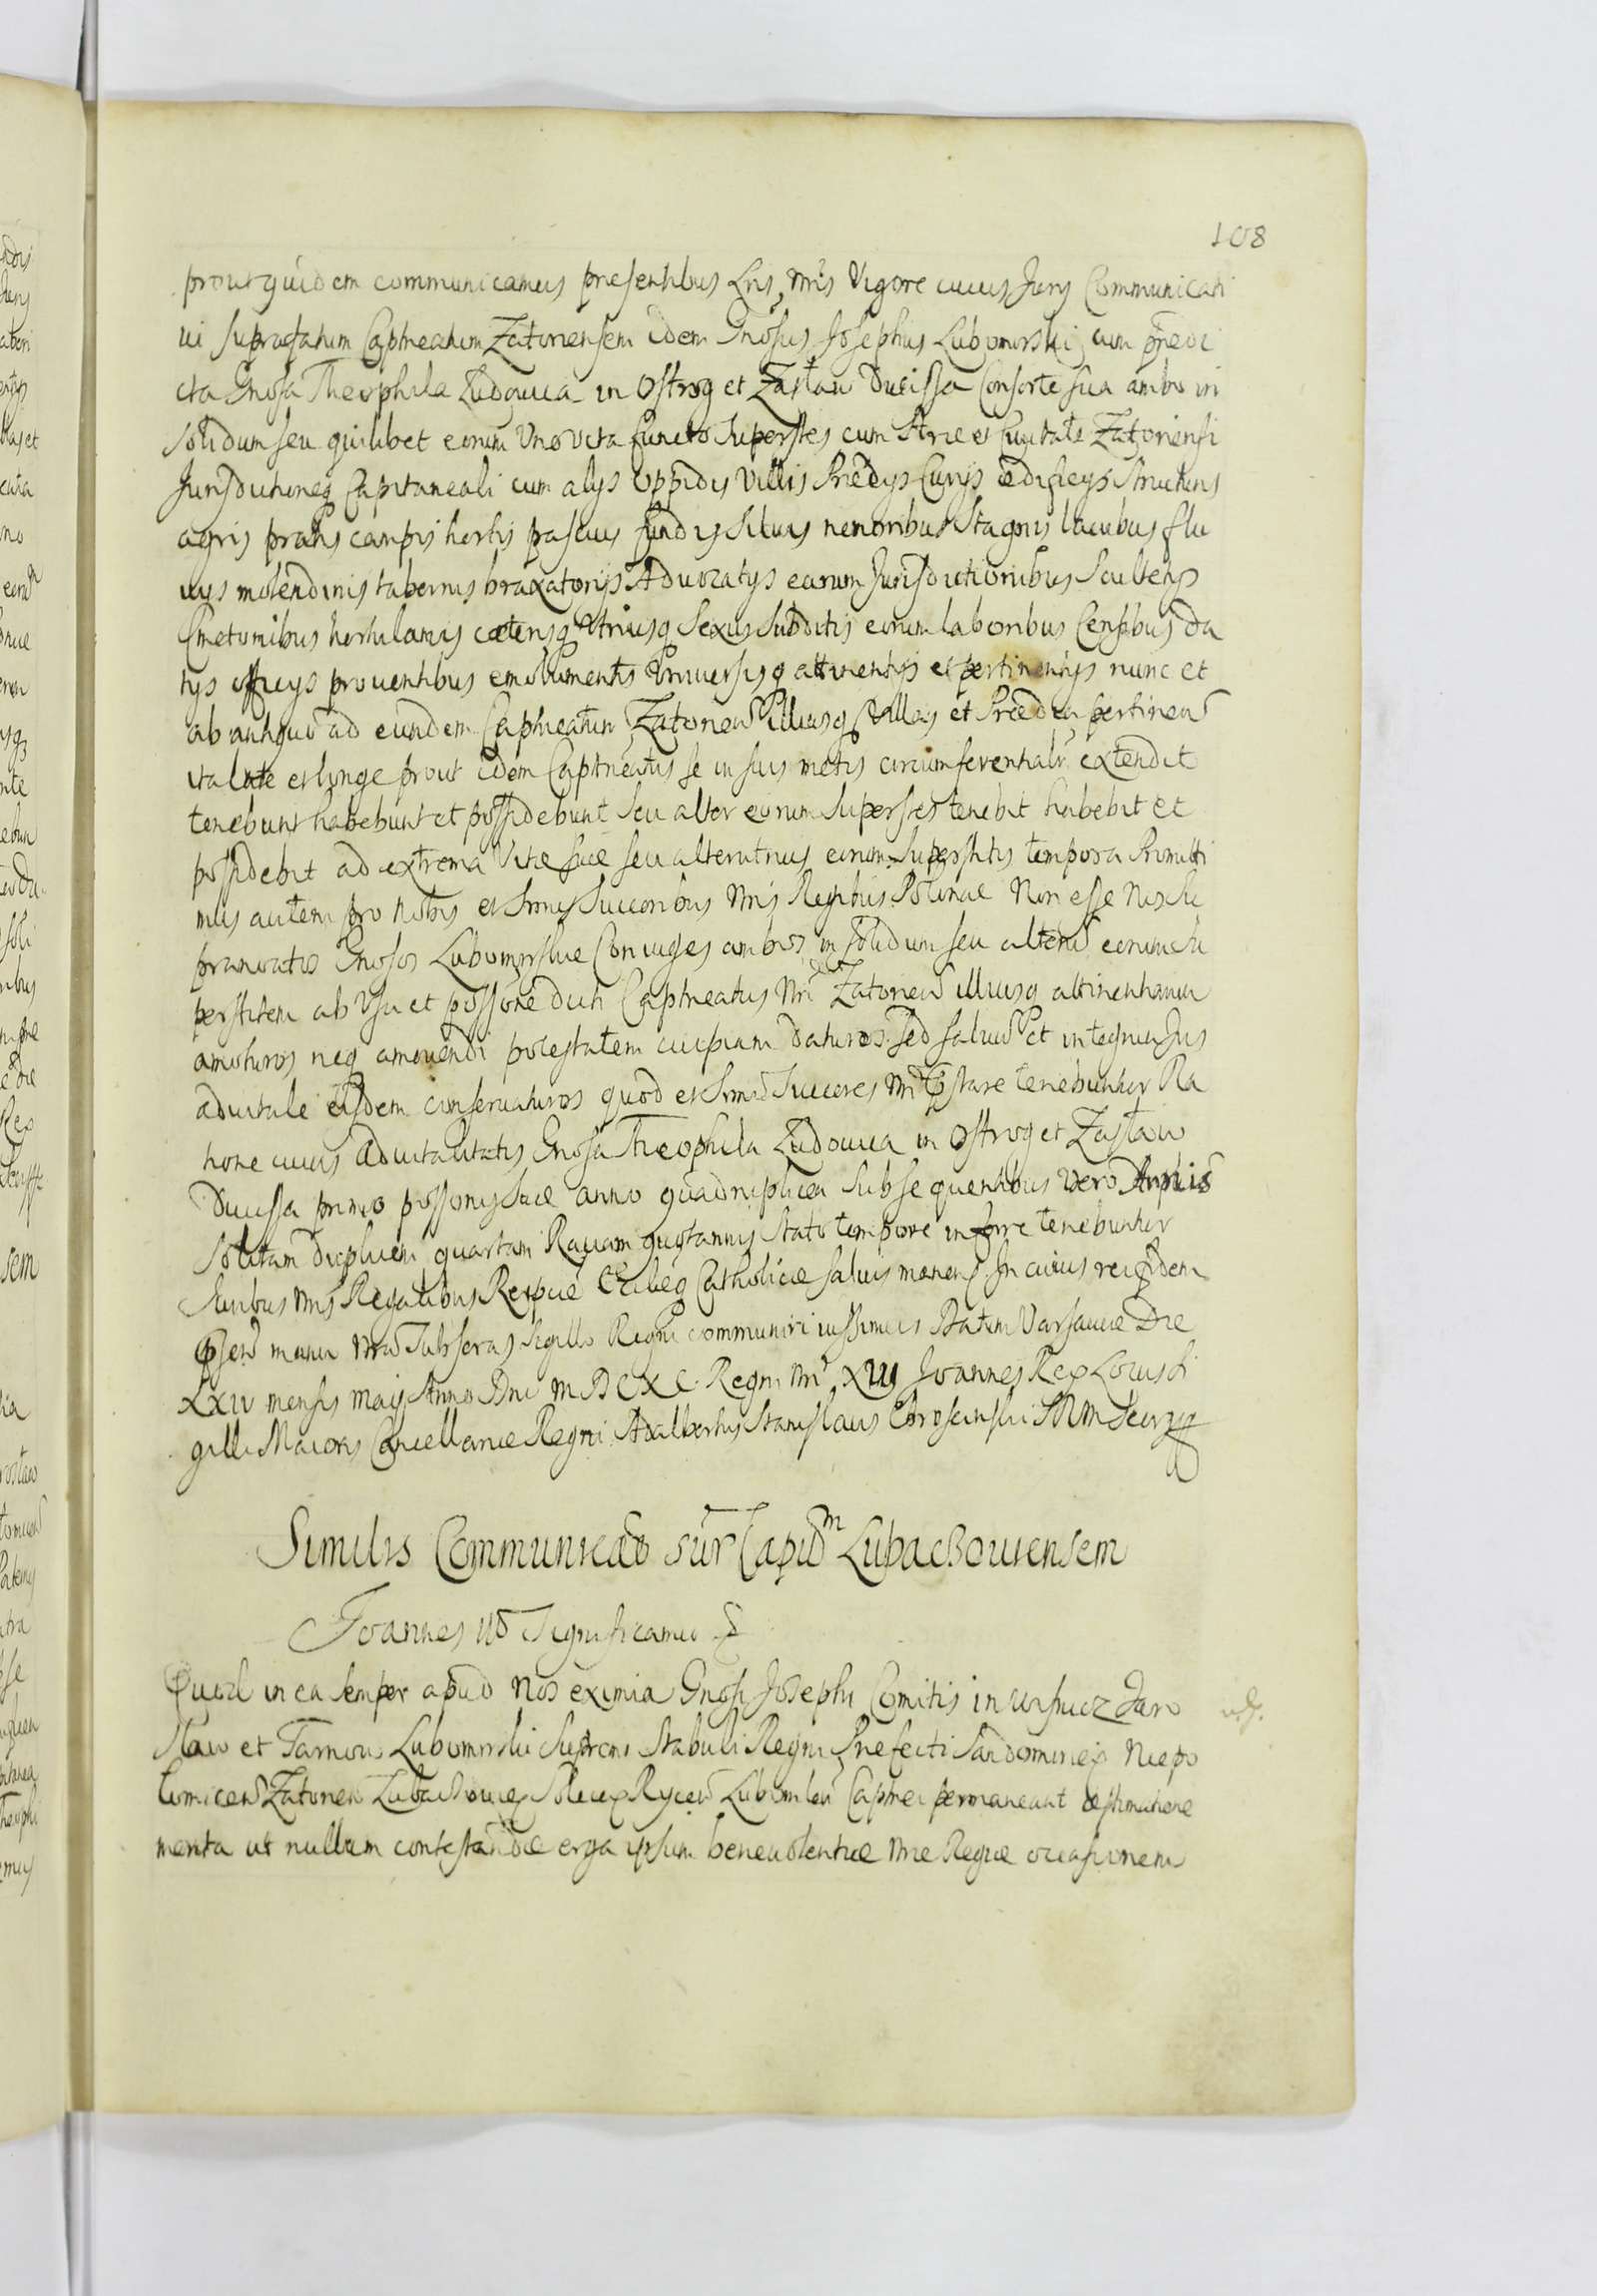 108
prout quidem communicamus presentibus Lris Nris Vigore cuius Juris Communicati
ui supradatum Captneatum Zatoriensem idem Gnosus Josephus Lubomirski cum predi
cta Gnosa Theophila Ludouica in Ostrog et Zaslaw Ducissa Consorte sua ambo in
solidum seu quilibet eorum Uno vita functo superstes cum Arce et Ciuitate Zatoriensi
Jurisdictioneq Capitaneali cum alys Oppidis Villis Prædys Curys ædificys structuris
agris pratis campis hortis pascuis fundis siluis nemoribus stagnis lacubus flu
uys molendinis tabernis braxatorys Aduocatys earum Jurisdictionibus Scultetys
Cmetonibus hortulanis cæterisq Utriusq Sexus Subditis eorum laboribus Censibus da
tys officys prouentibus emolumentis Vniuersisq attinentys et pertinentys nunc et
ab antiquo ad eundem Captneatum Zatorien illiusq Villas et Prædia pertinen
ita late et longe prout idem Captneatus se in suis metis circumferentialr extendit
tenebunt habebunt et possidebunt seu alter eorum superstes tenebit habebit et
possidebit ad extrema Vitæ suæ seu alterutrius eorum superstitis tempora Promitti
mus autem pro Nobis et Srmis Succoribus Nris Regibus Poloniæ Non esse Nos su
pranoatos Gnosos Lubomirskie Coniuges ambos in solidum seu alterum eorum su
perstitem ab Usu et possone dicti Captneatus Nri Zatorien illiusq attinentiarum
amoturos neq amouendi potestatem cuipiam daturos sed saluum et integrum Jus
aduitale eisdem conseruaturos quod et Srmi Succores Nri pstare tenebuntur Ra
tione cuius aduitalitatis Gnosa Theophila Ludouica in Ostrog et Zaslaw
Ducissa primo possonis suæ anno quadruplicem subsequentibus vero Annis
solitam duplicem quartam Rauam quotannis stato tempore inferre tenebuntur
Juribus Nris Regalibus Reipcæ Ecclæq Catholicæ saluis manen In cuius rei fidem
psen manu Nra subscras sigillo Regni communiri iussimus Datum Varsauiæ Die
LXIV mensis Maij Anno Dni MDCXC Regni Nri XVI Joannes Rex Locus si
gilli Maioris Cancellariæ Regni Adalbertus Stanislaus Chroscinski SRM Secr
Similis Communicão sur Captũm Lubaczouiensem
Joannes IIIs Significamus
Quod in ea semper apud Nos eximia Gnosi Josephi Comitis in Wisnicz Jaro
slaw et Tarnow Lubomirski Supremi Stabuli Regni Præfecti Sandomirien Niepo
lomicen Zatorien Lubaczouien Solecen Rycen Lubomlen Captnei permaneant æstimatione
merita ut nullam contestandæ erga ipsum beneuolentiæ Nræ Regiæ occasionem